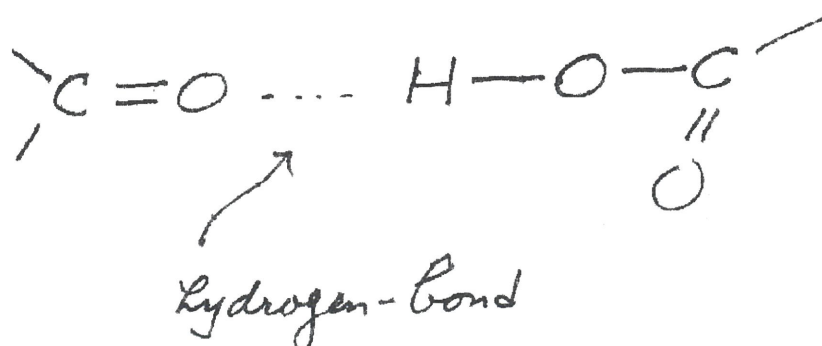 C = O .... H — O — C
O
hydrogen-bond